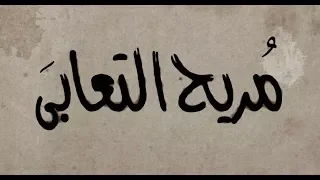 مُريح التعابىَ